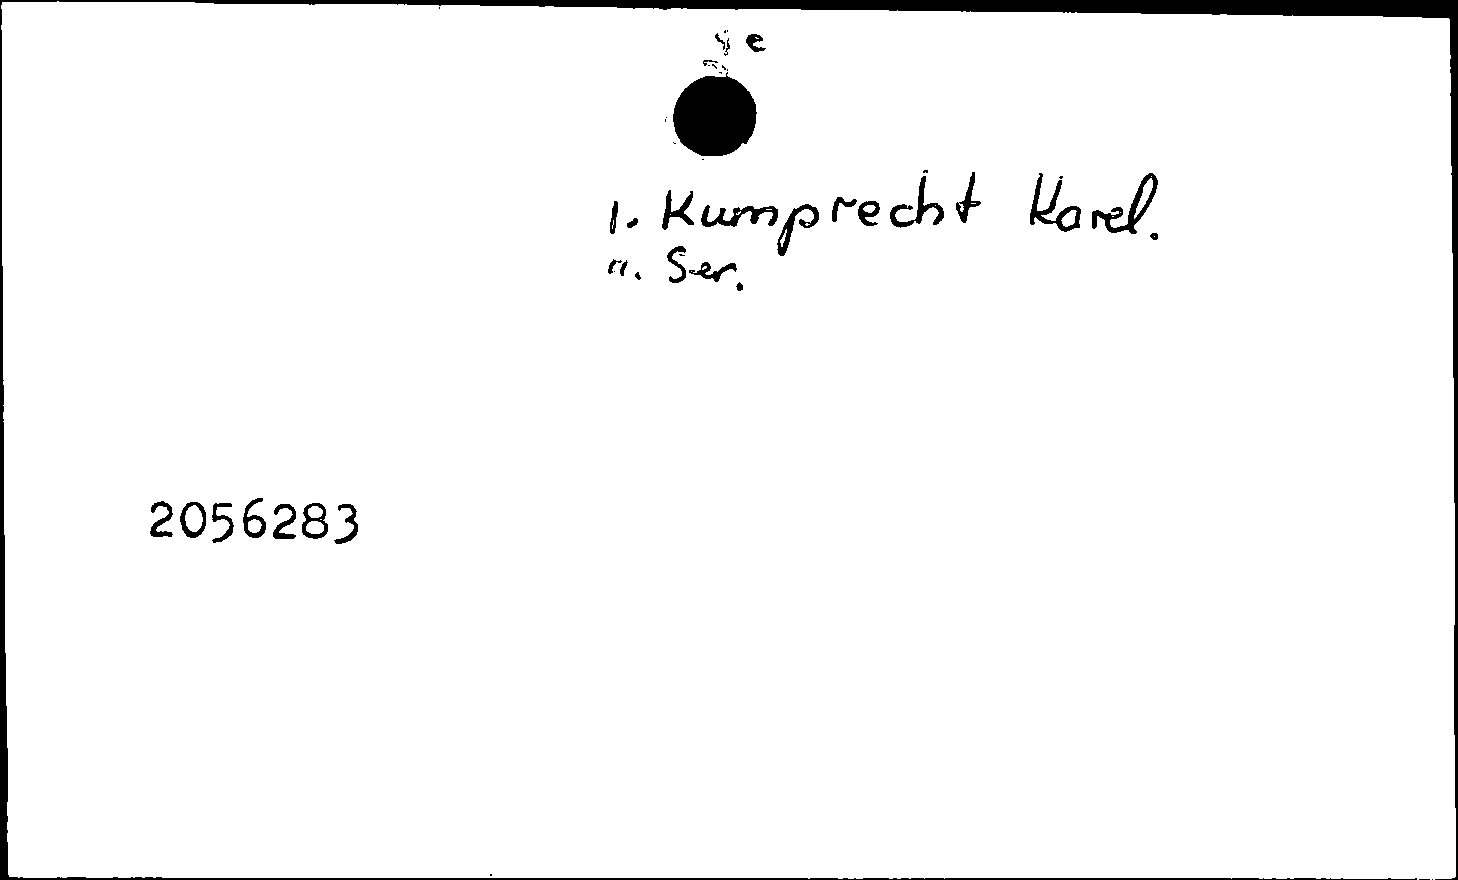 I. Kumprecht Karel.
II. Ser.
2056283